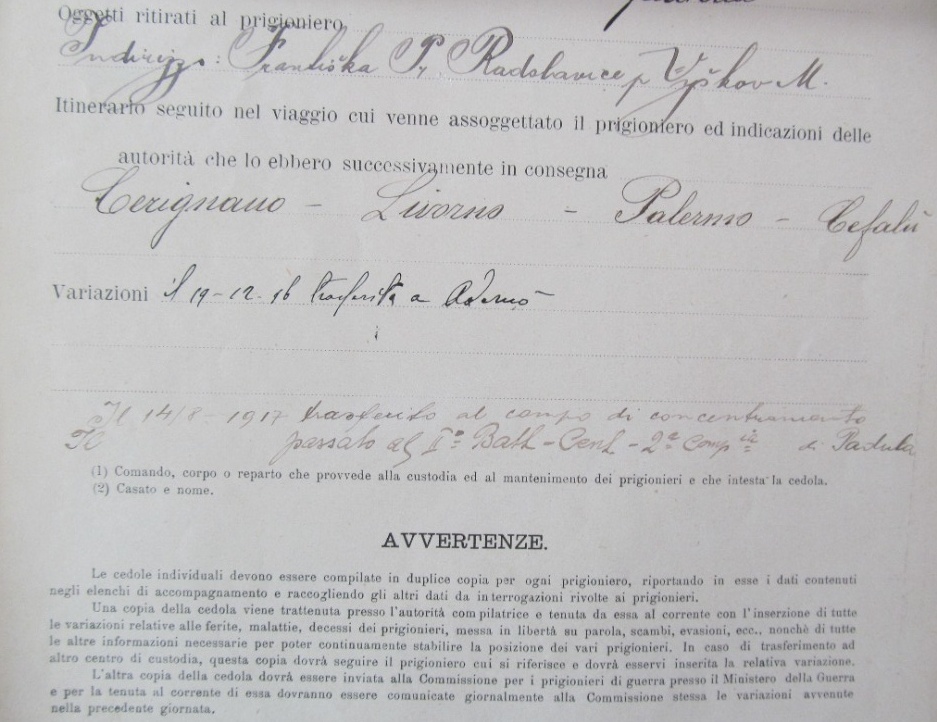 Oggetti ritirati al prigioniero,
Indirizzo: Františka P, Radslavice p Vyškov M.
Itinerario seguito nel viaggio cui venne assoggettato il prigioniero ed indicazioni delle
autorità che lo ebbero successivamente in consegna
Cerignano - Livorno - Palermo - Cefalù
Variazioni il 19-12-16 trasferito a Adernò
Il 14/8-1917 trasferito al campo di concentramento
Il passato al Iº Batt-Cent-2ª Comp di Padula
(1) Comando, corpo o reparto che provvede alla custodia ed al mantenimento dei prigionieri e che intesta la cedola.
(2) Casato e nome.
AVVERTENZE.
Le cedole individuali devono essere compilate in duplice copia per ogni prigioniero, riportando in esse i dati contenuti
negli elenchi di accompagnamento e raccogliendo gli altri dati da interrogazioni rivolte ai prigionieri.
Una copia della cedola viene trattenuta presso l'autorità compilatrice e tenuta da essa al corrente con l'inserzione di tutte
le variazioni relative alle ferite, malattie, decessi dei prigionieri, messa in libertà su parola, scambi, evasioni, ecc., nonchè di tutte
le altre informazioni necessarie per poter continuamente stabilire la posizione dei vari prigionieri. In caso di trasferimento ad
altro centro di custodia, questa copia dovrà seguire il prigioniero cui si riferisce e dovrà esservi inserita la relativa variazione.
L'altra copia della cedola dovrà essere inviata alla Commissione per i prigionieri di guerra presso il Ministero della Guerra
e per la tenuta al corrente di essa dovranno essere comunicate giornalmente alla Commissione stessa le variazioni avvenute
nella precedente giornata.